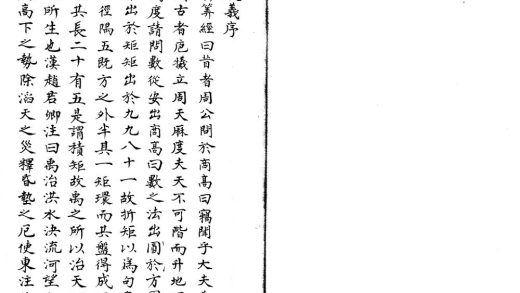 義序
筭經曰昔者周公問於商高曰竊聞乎大夫
古者庖犧立周天厤度夫天不可階而升地
度請問數從安出商高曰數之法出圓於方
出於矩矩出於九九八十一故折矩以爲句
徑隅五既方之外半其一矩環而共盤得成
共長二十有五是謂積矩故禹之所以治天
所生也漢趙君卿注曰禹治洪水決流河望
高下之勢除滔天之災釋昏墊之厄使東注